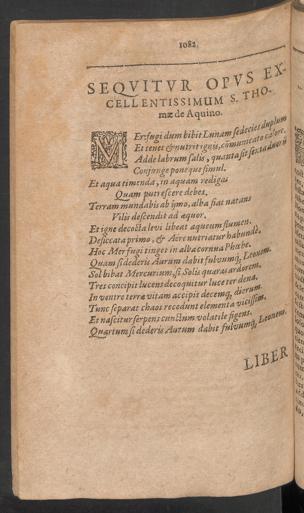 1082
SEQVITVR OPVS EX-
CELLENTISSIMUM S. THO-
mæ de Aquino.
MErfugi dum bibit Lunam sedecies duplum
Et tenet & nutret ignis, communicato calore.
Adde labrum salis, quanta sit sexta duorum
Conjunge pone que simul.
Et aqua timenda, in aquam redigas
Quam putrescere debet.
Terram mundabis ab imo, alba fiat natans
Vilis descendit ad æquor.
Et igne decocta levi libeat aqueum flumen.
Desiccata primo, & Aëre nutriatur habundè.
Hoc Merfugi tinget in alba cornua Phœbe.
Quam si dederis Aurum dabit fulvumq́; Leonem.
Sol bibat Mercurium, si Solis quæras ardorem.
Tres concipit lucens decoquitur luce ter dena.
In ventre terra vitam accipit decemq́; diorum.
Tunc separat chaos recedunt elementa vicissim.
Et nascitur serpens cunctum volatile figens.
Quartum si dederis Aurum dabit fulvumq́; Leonem.
LIBER